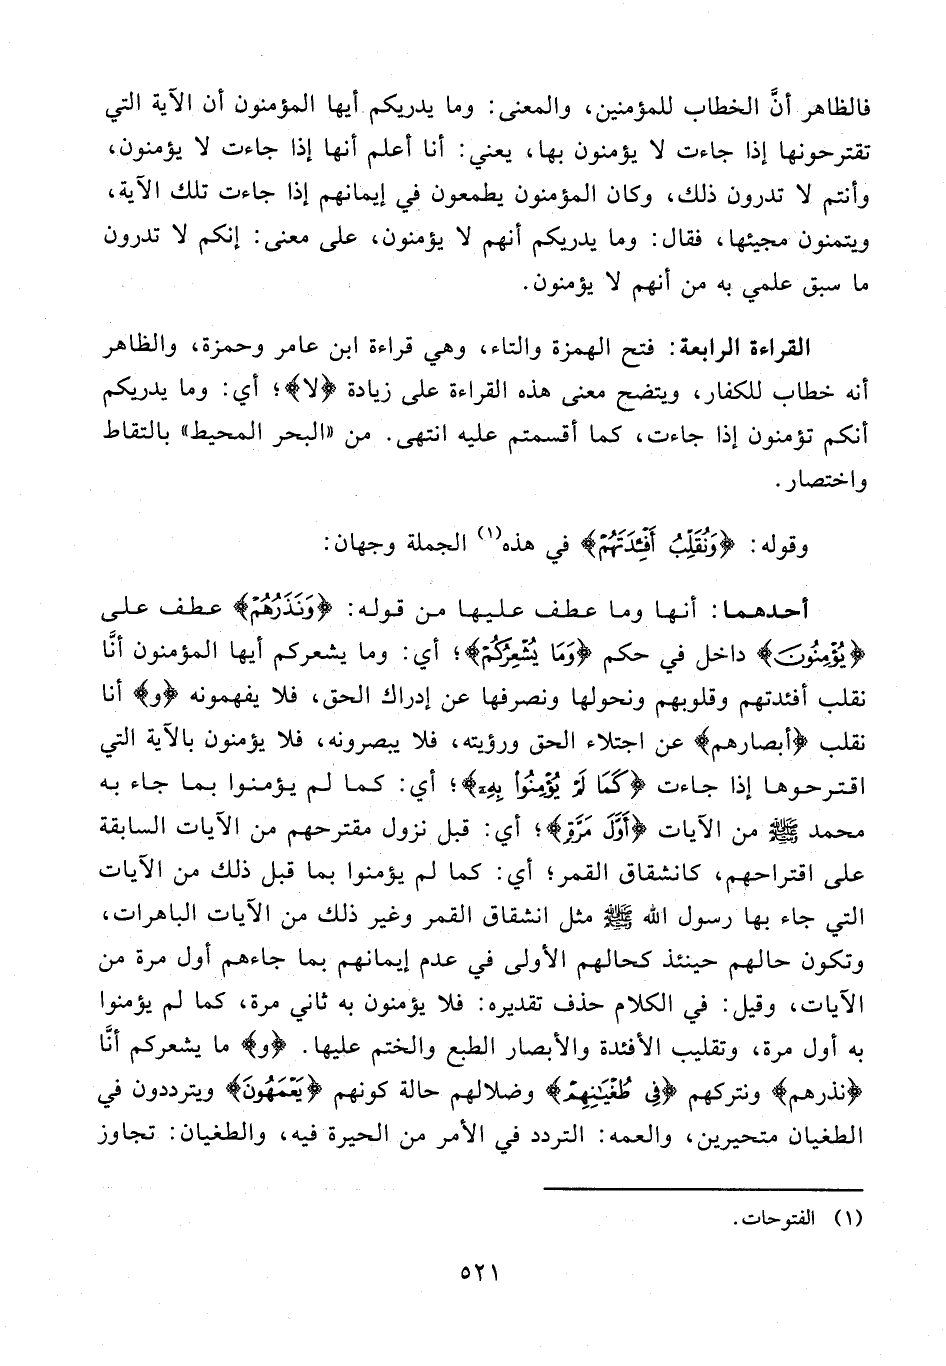 فالظاهر أنَّ الخطاب للمؤمنين، والمعنى: وما يدريكم أيها المؤمنون أن الآية التي
تقترحونها إذا جاءت لا يؤمنون بها، يعني: أنا أعلم أنها إذا جاءت لا يؤمنون،
وأنتم لا تدرون ذلك، وكان المؤمنون يطمعون في إيمانهم إذا جاءت تلك الآية،
ويتمنون مجيئها، فقال: وما يدريكم أنهم لا يؤمنون، على معنى: إنكم لا تدرون
ما سبق علمي به من أنهم لا يؤمنون.
القراءة الرابعة: فتح الهمزة والتاء، وهي قراءة ابن عامر وحمزة، والظاهر
أنه خطاب للكفار، ويتضح معنى هذه القراءة على زيادة ﴿لا﴾؛ أي: وما يدريكم
أنكم تؤمنون إذا جاءت، كما أقسمتم عليه انتهى. من «البحر المحيط» بالتقاط
واختصار.
وقوله: ﴿وَنُقَلِّبُ أَفْئِدَتَهُمْ﴾ في هذه(١) الجملة وجهان:
أحدهما: أنها وما عطف عليها من قوله: ﴿وَنَذَرُهُمْ﴾ عطف على
﴿يُؤْمِنُونَ﴾ داخل في حكم ﴿وَمَا يُشْعِرُكُمْ﴾؛ أي: وما يشعركم أيها المؤمنون أنَّا
نقلب أفئدتهم وقلوبهم ونحولها ونصرفها عن إدراك الحق، فلا يفهمونه ﴿و﴾ أنا
نقلب ﴿أبصارهم﴾ عن اجتلاء الحق ورؤيته، فلا يبصرونه، فلا يؤمنون بالآية التي
اقترحوها إذا جاءت ﴿كَمَا لَمْ يُؤْمِنُوا بِهِۦ﴾؛ أي: كما لم يؤمنوا بما جاء به
محمد ﷺ من الآيات ﴿أَوَّلَ مَرَّةٍ﴾؛ أي: قبل نزول مقترحهم من الآيات السابقة
على اقتراحهم، كانشقاق القمر؛ أي: كما لم يؤمنوا بما قبل ذلك من الآيات
التي جاء بها رسول الله ﷺ مثل انشقاق القمر وغير ذلك من الآيات الباهرات،
وتكون حالهم حينئذ كحالهم الأولى في عدم إيمانهم بما جاءهم أول مرة من
الآيات، وقيل: في الكلام حذف تقديره: فلا يؤمنون به ثاني مرة، كما لم يؤمنوا
به أول مرة، وتقليب الأفئدة والأبصار الطبع والختم عليها. ﴿و﴾ ما يشعركم أنَّا
﴿نذرهم﴾ ونتركهم ﴿فِي طُغْيَانِهِمْ﴾ وضلالهم حالة كونهم ﴿يَعْمَهُونَ﴾ ويترددون في
الطغيان متحيرين، والعمه: التردد في الأمر من الحيرة فيه، والطغيان: تجاوز
(١) الفتوحات.
٥٢١